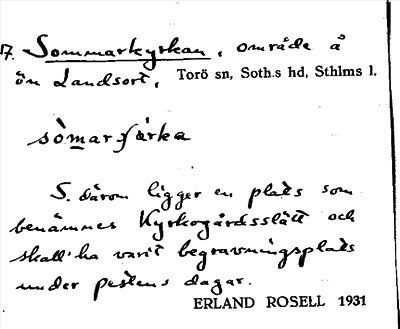 17. Sommarkyrkan, område å
ön Landsort, Torö sn, Soth.s hd, Sthlms l.
sòmarçárka
S. därom ligger en plats som
benämnes Kyrkogårdsslätt och
skall ha varit begravningsplats
under pestens dagar.
ERLAND ROSELL 1931